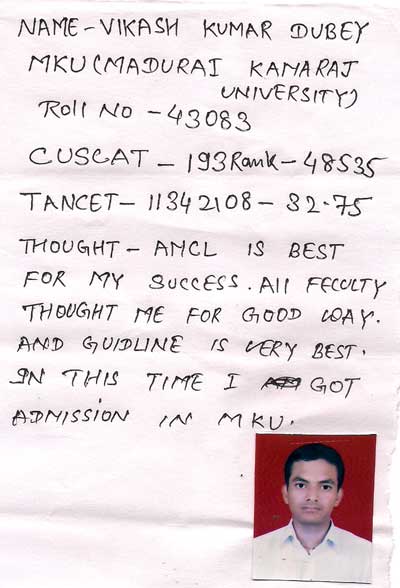 NAME-VIKASH KUMAR DUBEY
MKU(MADURAI KAMARAJ
UNIVERSITY)
Roll No - 43083
CUSCAT - 193Rank - 48535
TANCET- 11342108 - 32.75
THOUGHT - AMCL IS BEST
FOR MY SUCCESS. All FECULTY
THOUGHT ME FOR GOOD WAY.
AND GUIDLINE IS VERY BEST.
IN THIS TIME I GOT
ADMISSION IN MKU.